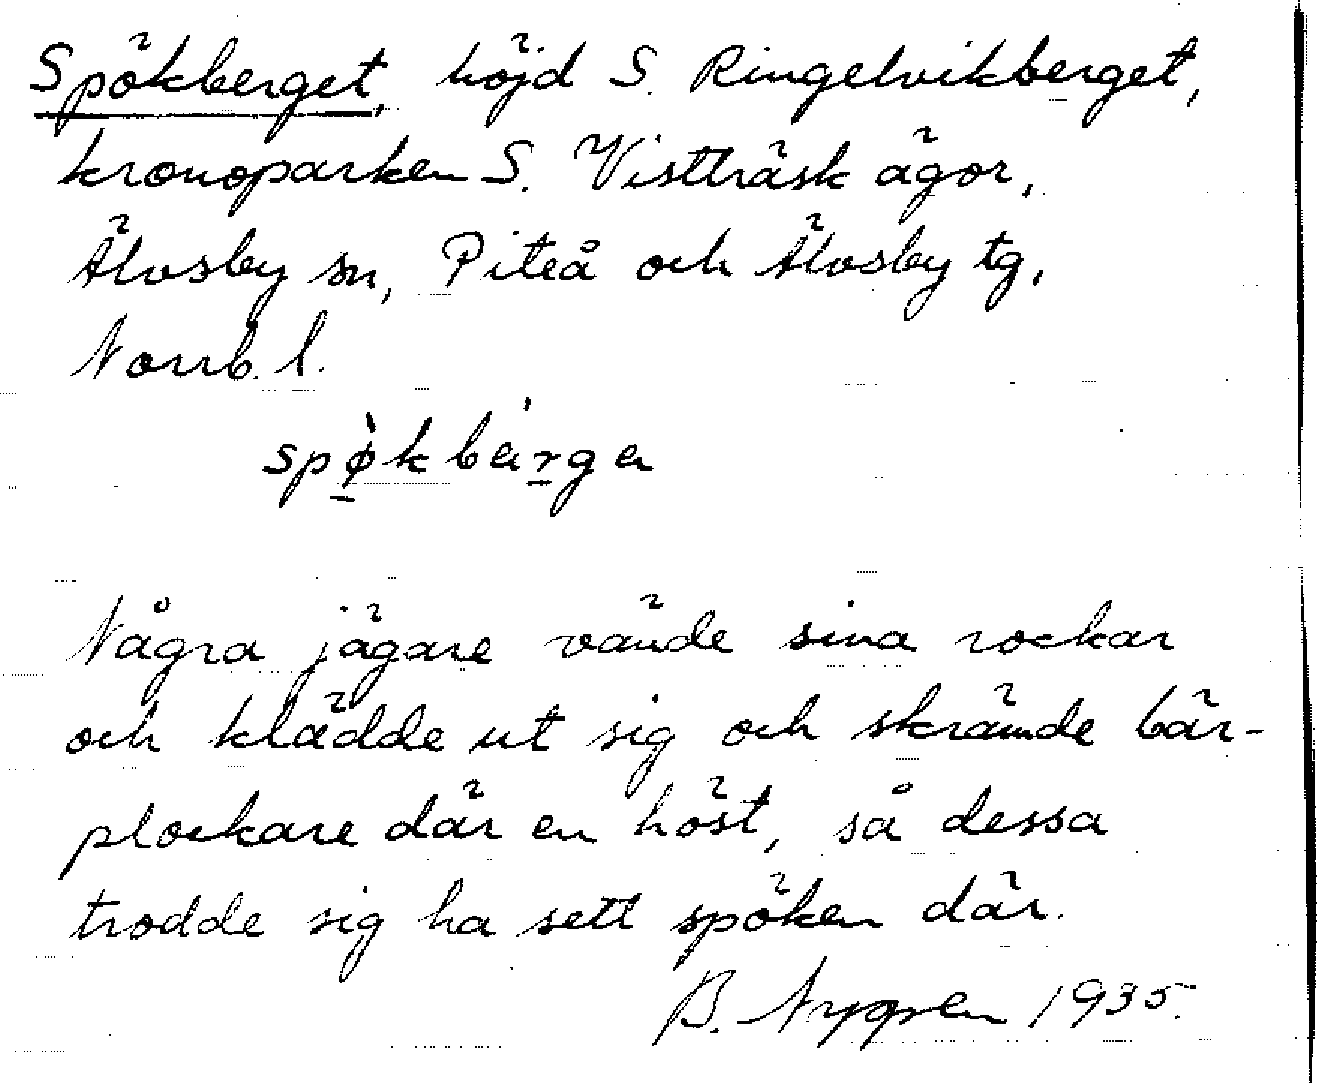 Spökberget, höjd S. Ringelvikberget,
kronoparken S. Vistträsk ägor,
Älvsby sn, Piteå och Älvsby tg,
Norrb. l.
spø̀kbärga
Några jägare vände sina rockar
och klädde ut sig och skrämde bär-
plockare där en höst, så dessa
trodde sig ha sett spöken där.
B. Nygren 1935.